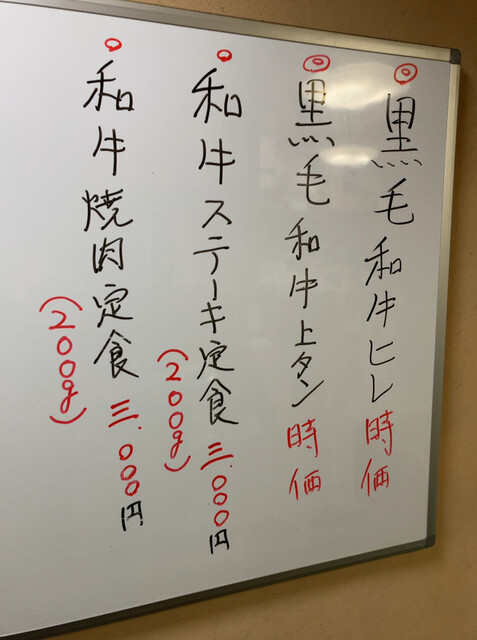 ◎黒毛和牛ヒレ時価
◎黒毛和牛上タン時価
○和牛ステーキ定食三.000円
(200g)
○和牛焼肉定食三.000円
(200g)